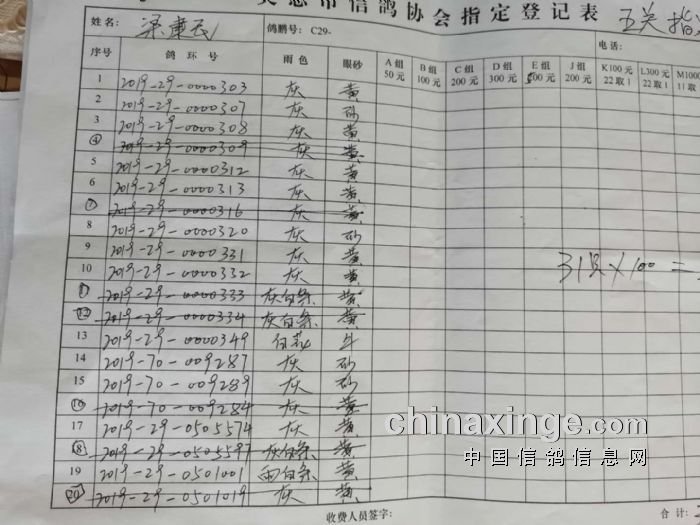 市信鸽协会指定登记表 五关指
姓名: 梁東民 鸽鹏号: C29- 电话:
序号 鸽环号 雨色 眼砂 A组 50元 B组 100元 C组 200元 D组 300元 E组 500元 J组 200元 K100元 22取1 L300元 22取1 M1000 11取1
1 2019-29-0000303 灰 黄
2 2019-29-0000307 灰 砂
3 2019-29-0000308 灰 黄
4 2019-29-0000309 灰 黄
5 2019-29-0000312 灰 黄
6 2019-29-0000313 灰 黄
7 2019-29-0000316 灰 黄
8 2019-29-0000320 灰 砂
9 2019-29-0000331 灰 黄
10 2019-29-0000332 灰 黄
11 2019-29-0000333 灰白条 黄
12 2019-29-0000334 灰白条 黄
13 2019-29-0000349 白花 牛
14 2019-70-009287 灰 砂
15 2019-70-009289 灰 砂
16 2019-70-009284 灰 黄
17 2019-29-0505574 灰 黄
18 2019-29-0505597 灰白条 黄
19 2019-29-0501001 雨白条 黄
20 2019-29-0501019 灰 黄
31只×100=
收费人员签字: 合计:
chinaxinge.com
中国信鸽信息网